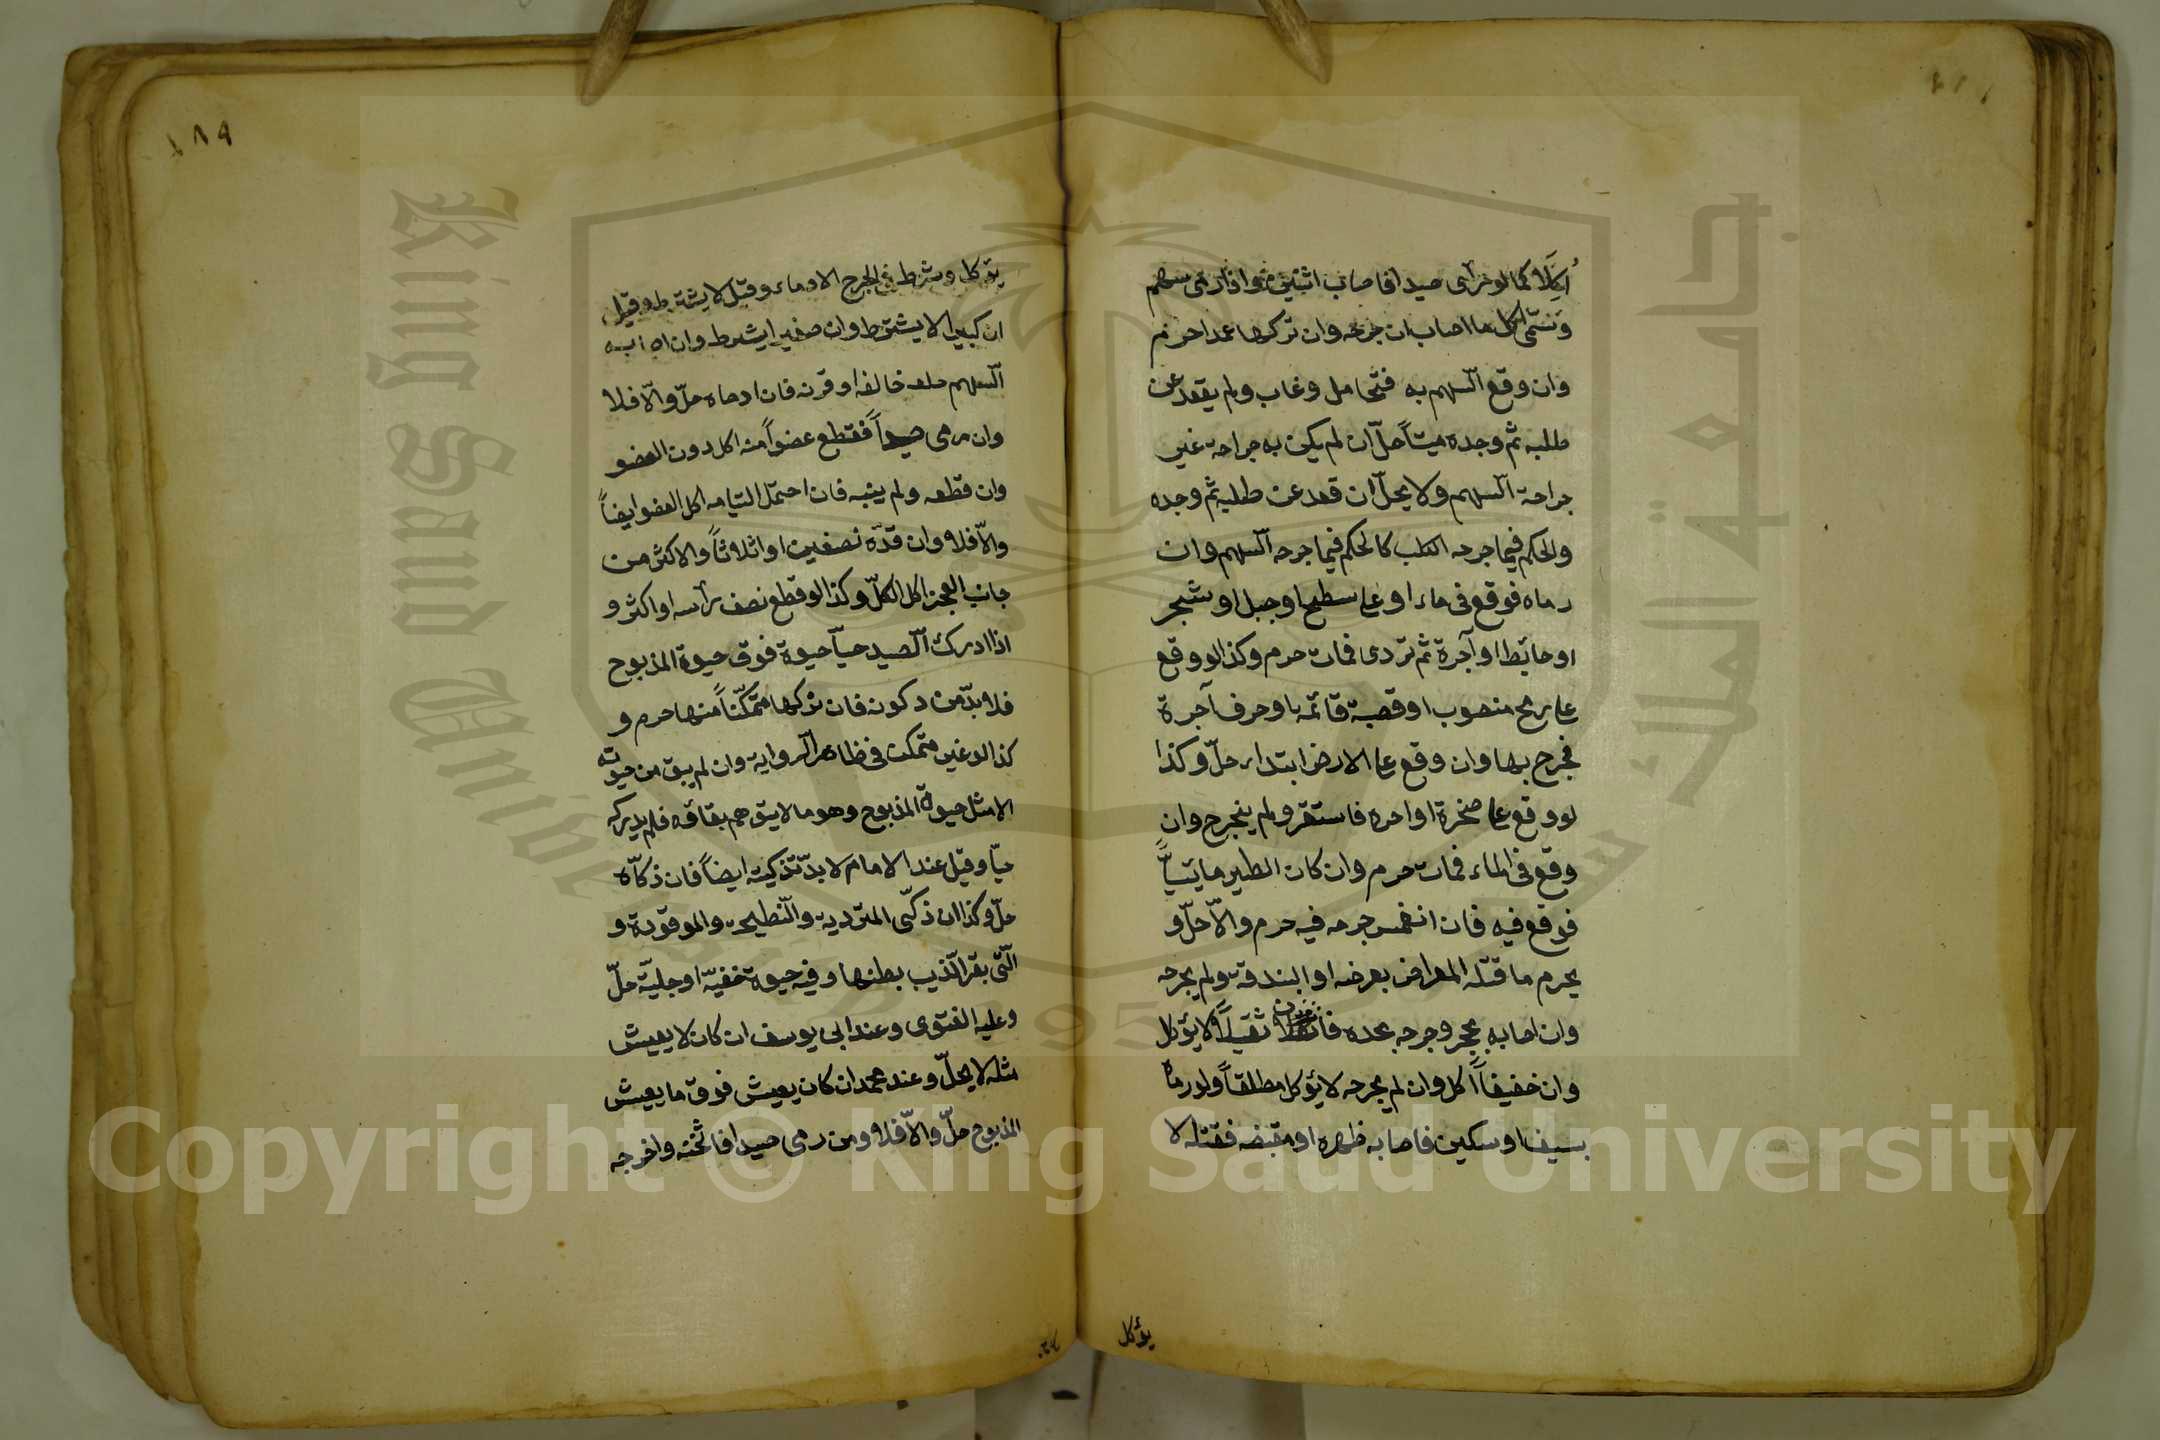 اكلا كما لو رمى صيدا فاصاب اثنين واذا رمى سهم
وسمى اكل ما اصاب ان جرحه وان تركها عمدا حرم
وان وقع السهم به فتحامل وغاب ولم يقعد عن
طلبه ثم وجده ميتاً حلّ ان لم يكن به جراحة غير
جراحة السهم ولا يحلّ ان قعد عن طلبه ثم وجده
والحكم فيما جرحه الكلب كالحكم فيما جرحه السهم وان
رماه فوقع فى ماء او على سطح او جبل او شجر
او حائط او آجرة ثم تردى فمات حرم وكذا لو وقع
على رمح منصوب او قصبة قائمة او حرف آجرة
فجرح بها وان وقع على الارض ابتداء حلّ وكذا
لو وقع على صخرة او اجرة فاستقر ولم ينجرح وان
وقع فى الماء فمات حرم وان كان الطير مائيّاً
فوقع فيه فان انغمس جرحه فيه حرم والاّ حلّ و
يحرم ما قتله المعراض بعرضه او البندقة ولم يجرحه
وان اصابه بحجر وجرحه بحده فان ثقيلاً لا يؤكل
وان خفيفاً اكل وان لم يجرحه لا يؤكل مطلقاً ولو رماه
بسيف او سكين فاصابه ظهره او مقبضه فقتله لا
يؤكل
١٨٩
يؤكل وشرط فى الجرح الادماء وقيل لا يشترط وقيل
ان كبيرا لا يشترط وان صغيرا يشترط وان اصابه
السهم ظلفه او قرنه فان ادماه حلّ والاّ فلا
وان رمى صيداً فقطع عضواً منه اكل دون العضو
وان قطعه ولم يبنه فان احتمل التيامه اكل العضو ايضاً
والاّ فلا وان قدّه نصفين او اثلاثاً والاكثر من
جانب العجز اكل الكلّ وكذا لو قطع نصف رأسه او اكثر و
اذا ادرك الصيد حيّاً حيوة فوق حيوة المذبوح
فلا بدّ من ذكوته فان تركها متمكّناً منها حرم و
كذا لو غير متمكن فى ظاهر الرواية وان لم يبق من حيوته
الا مثل حيوة المذبوح وهو ما لا يتوهم بقاؤه فلم يدركه
حيّا وقيل عند الامام لا بدّ تذكيته ايضاً فان ذكّاه
حلّ وكذا ان ذكّى المتردية والنطيحة والموقوذة و
الّتى بقر الذيب بطنها وفيه حيوة خفيّة او جليّة حلّ
وعليه الفتوى وعند ابى يوسف ان كان لا يعيش
مثله لا يحلّ وعند محمد ان كان يعيش فوق ما يعيش
المذبوح حلّ والاّ فلا ومن رمى صيدا فاثخنه واخرجه
King Saud University
جامعة الملك سعود
Copyright © King Saud University